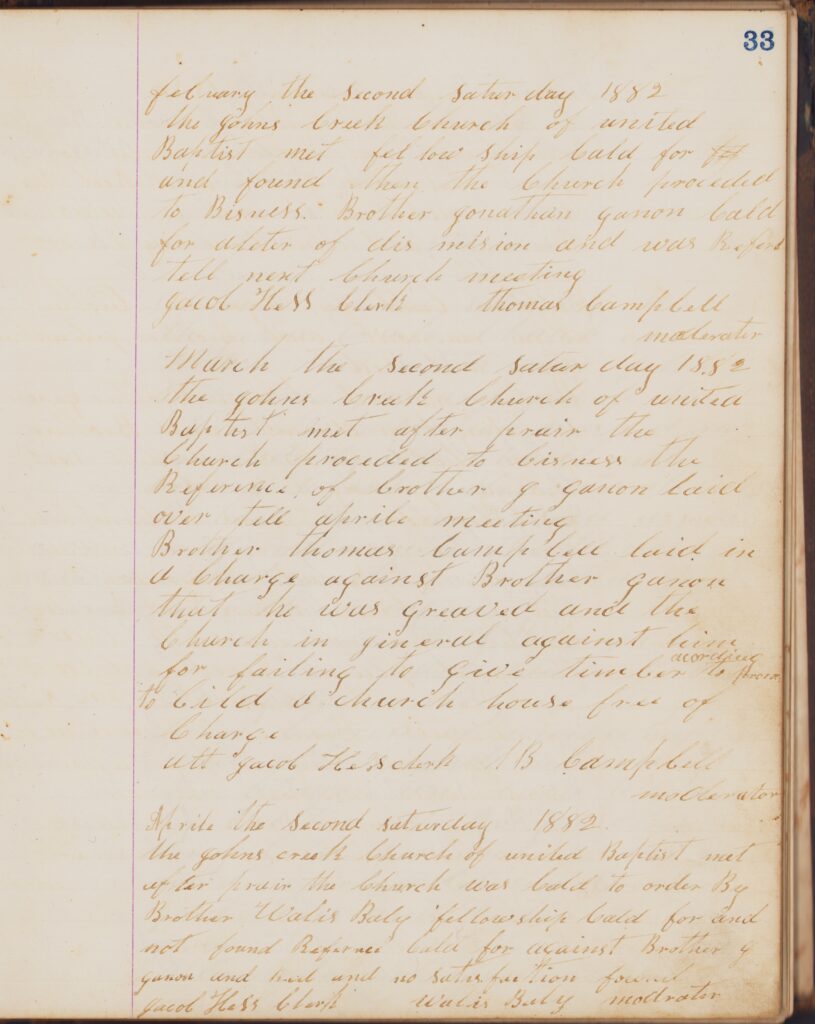 33
febuary the second satur day 1882
the gohns Creek Church of united
Baptist met fellow ship Cald for
and found then the Church proceded
to Bisness. Brother gonathan ganon Cald
for aleter of dis mision and was Referd
tell next Church meeting
gacob Hess Clerk thomas Campbell
moderater
March the second satur day 1882
the gohns Creek Church of united
Baptist met after prair the
Church proceded to bisness the
Reference of brother g ganon laid
over tell aprile meeting
Brother thomas Campbell laid in
a Charge against Brother ganon
that he was greaved and the
Church in gineral against him
for failing to give timber acording to prom
to bild a church house free of
Charge
att gacob Hess clerk Campbell
moderator
Aprile the second saturday 1882
the gohns creek Church of united Baptist met
after prair the Church was Cald to order By
Brother Walis Baly fellowship Cald for and
not found Refernce Cald for against Brother g
ganon and and no satisfaction found
gacob Hess Clerk Walis Baly modrater